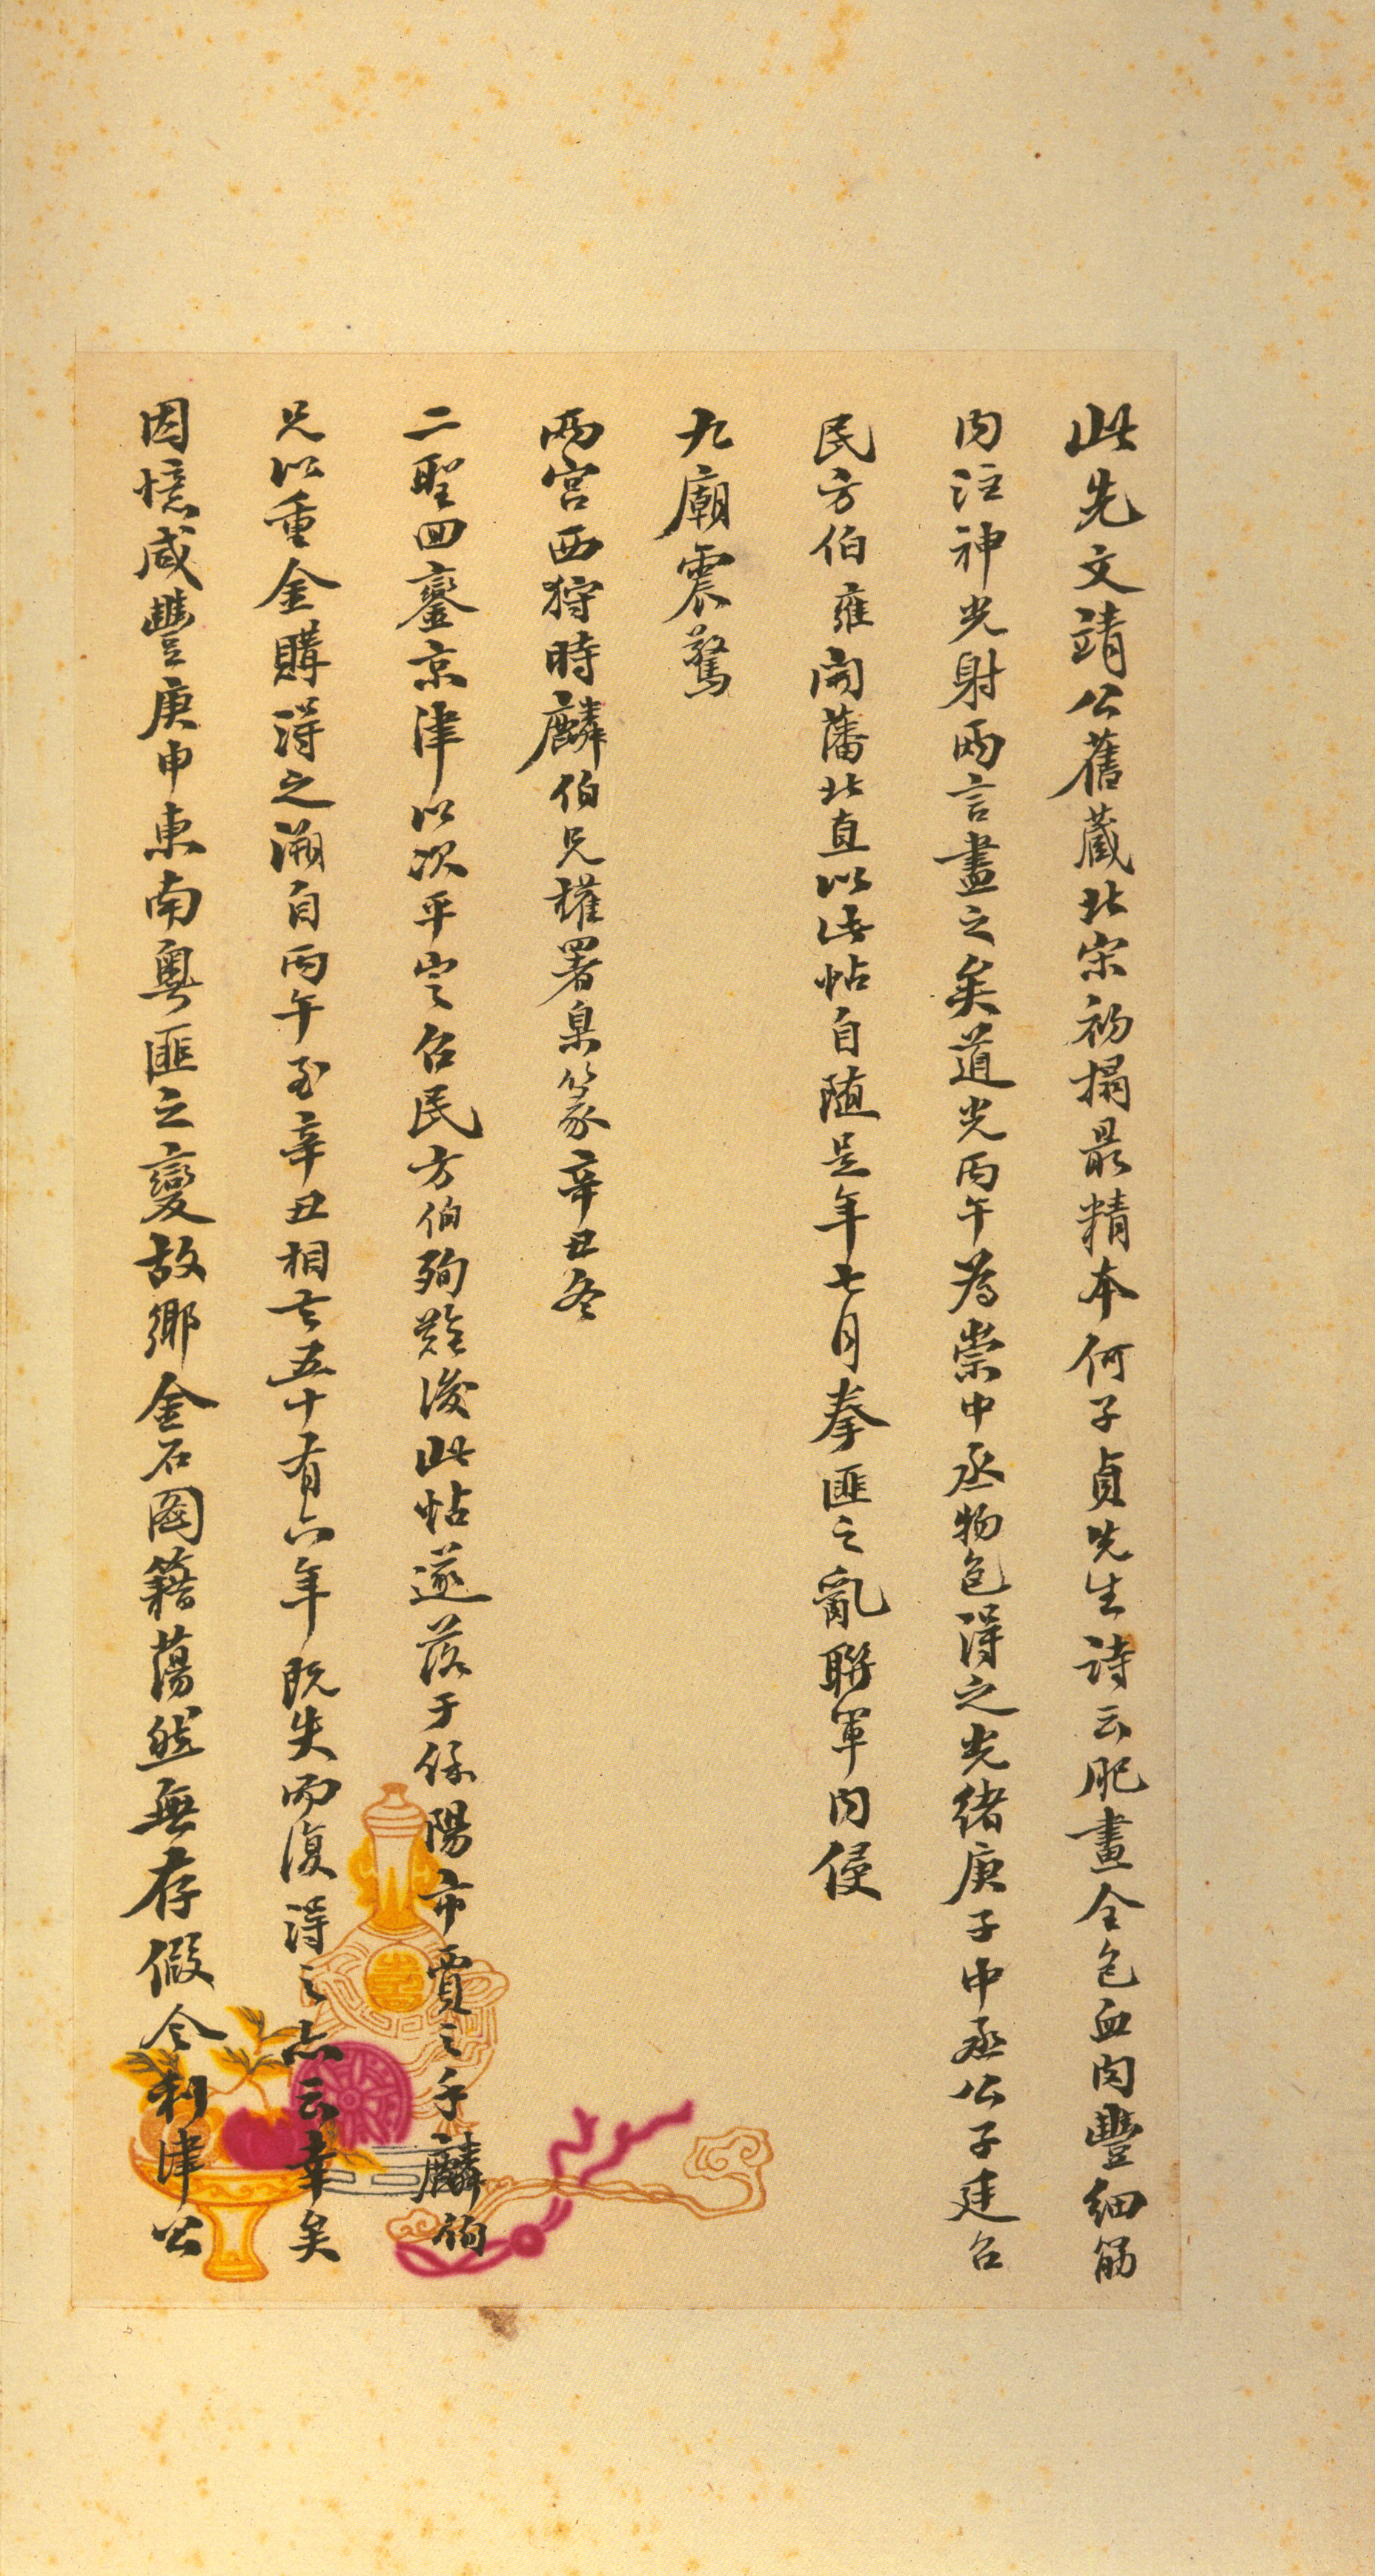 此先文靖公舊藏北宋初搨最精本何子貞先生詩云肥畫全包血肉豐細筋
内注神光射兩言盡之矣道光丙午為崇中丞物色得之光緒庚子中丞公子廷召
民方伯雍開藩北直以此帖自隨是年七月拳匪之亂聯軍内侵
九廟震驚
兩宮西狩時麟伯兄權署臬篆辛丑冬
二聖回鑾京津以次平定召民方伯殉難後此帖遂落于保陽市賈之手麟伯
兄以重金購得之溯自丙午至辛丑相去五十有六年既失而復得之亦云幸矣
因憶咸豐庚申東南粵匪之變故鄉金石圖籍蕩然無存假令利津公